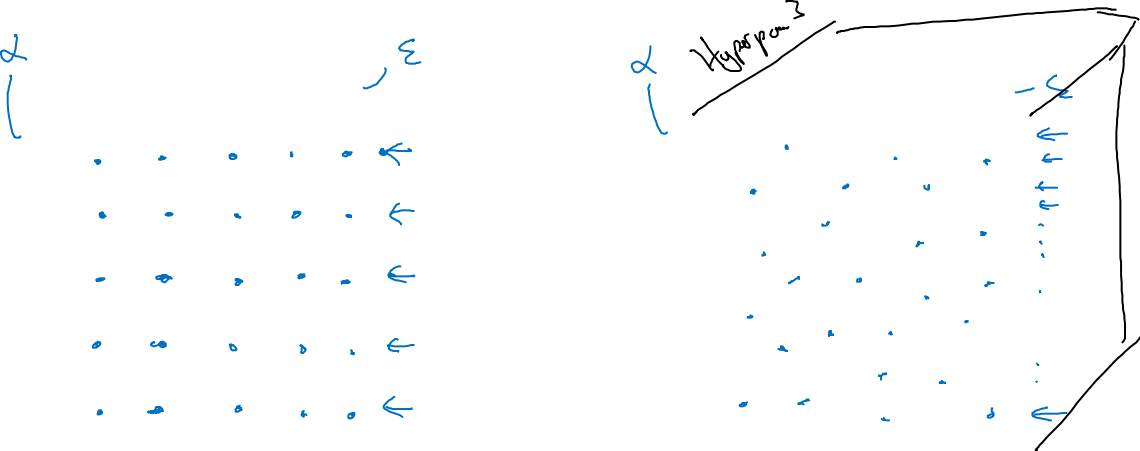 α
ε
α
Hyperpam 3
ε